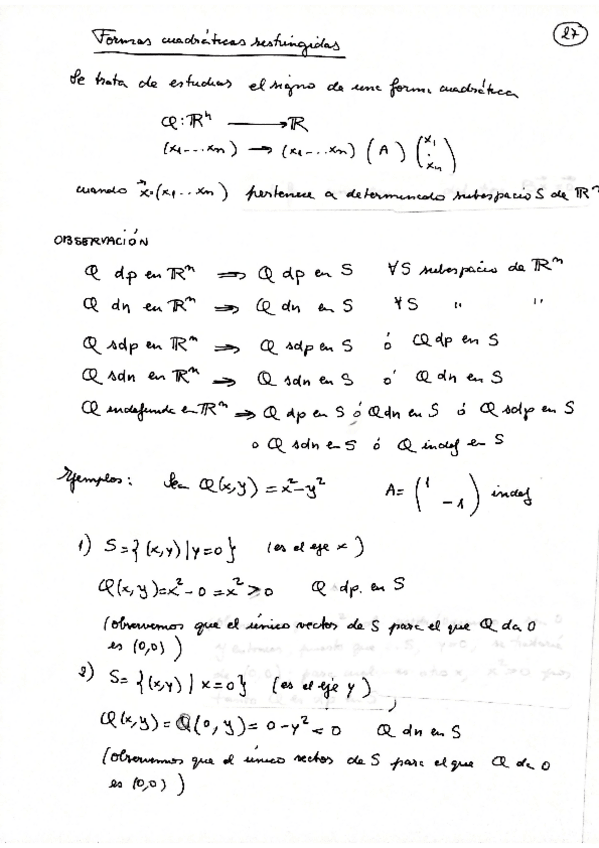 27
Formas cuadráticas restringidas
Se trata de estudiar el signo de una forma cuadrática
Q: ℝⁿ ⟶ ℝ
(x₁ --- xₙ) → (x₁ --- xₙ) (A) (x₁ ⋮ xₙ)
cuando x⃗=(x₁ ... xₙ) pertenece a determinado subespacio S de ℝⁿ
OBSERVACIÓN
Q dp en ℝⁿ ⟹ Q dp en S ∀S subespacio de ℝⁿ
Q dn en ℝⁿ ⟹ Q dn en S ∀S " "
Q sdp en ℝⁿ ⟹ Q sdp en S ó Q dp en S
Q sdn en ℝⁿ ⟹ Q sdn en S ó Q dn en S
Q indefinida en ℝⁿ ⟹ Q dp en S ó Q dn en S ó Q sdp en S
o Q sdn en S ó Q indef en S
Ejemplos: Sea Q(x,y) = x²-y² A = (1 -1) indef
1) S = {(x,y) | y=0} (es el eje x)
Q(x,y)=x²-0=x²>0 Q dp. en S
(observemos que el único vector de S para el que Q da 0
es (0,0))
2) S = {(x,y) | x=0} (es el eje y)
Q(x,y) = Q(0,y) = 0-y² < 0 Q dn en S
(observemos que el único vector de S para el que Q da 0
es (0,0))